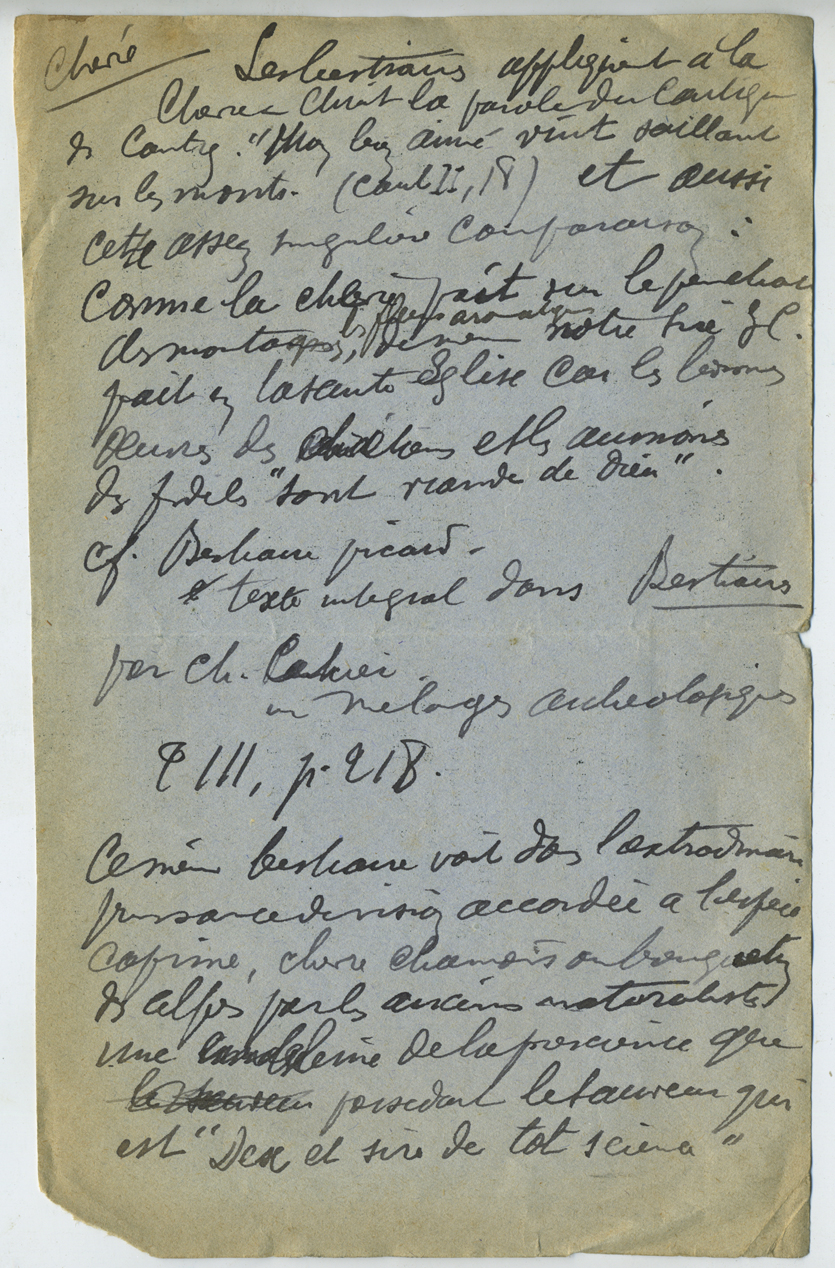 Chèvre
Les bestiaires appliquent à la
Chèvre Christ la parole du Cantique
des Cantiq. "Mon bien aimé vint saillant
sur les monts. (Cant II, 18) et aussi
cette assez singulière comparaison :
Comme la chèvre pait sur le penchant
des montagnes, les fleurs aromatiques, de même notre Sire J.C.
pait en la sainte Eglise car les bonnes
œuvres des chrétiens et les aumônes
des fidèles "sont viande de Dieu".
cf. Bestiaire picard.
texte integral dans Bestiaires
par Ch. Cahier
in Mélanges archéologiques
T III, p. 218.
Ce même bestiaire voit dans l'extraordinaire
puissance de vision accordée à l'espèce
caprine, chèvre chamois ou bouquetin
des alpes par les anciens naturalistes
une de la prescience que
le Sauveur possedait le Sauveur qui
est "Dex et sire de tot sciens"